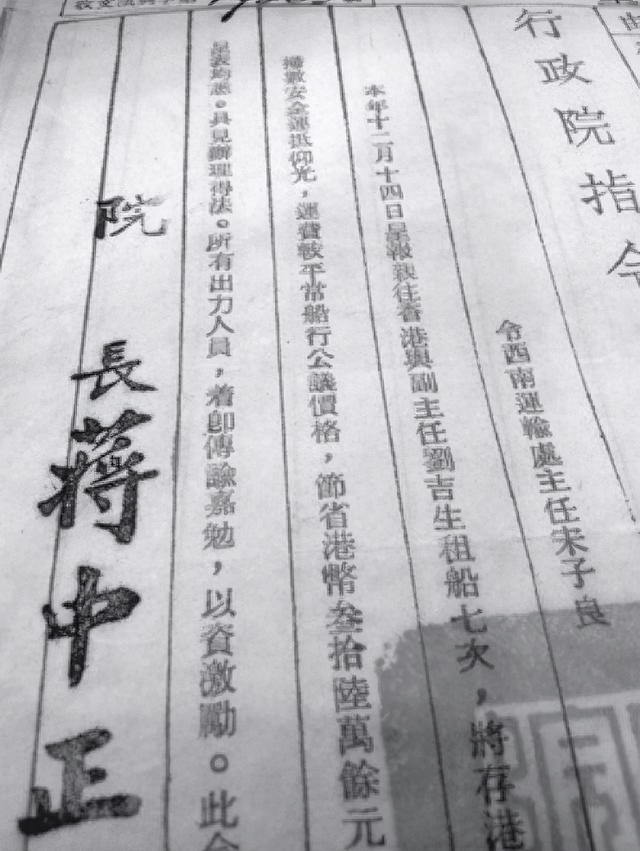 行政院指令
令西南運輸處主任宋子良
本年十二月十四日呈報親往香港與副主任劉吉生租船七次，將存港
械安全運抵仰光，運費較平常船行公議價格，節省港幣叁拾陸萬餘元
呈表均悉。具見辦理得法。所有出力人員，着即傳諭嘉勉，以資激勵。此令
院長蔣中正